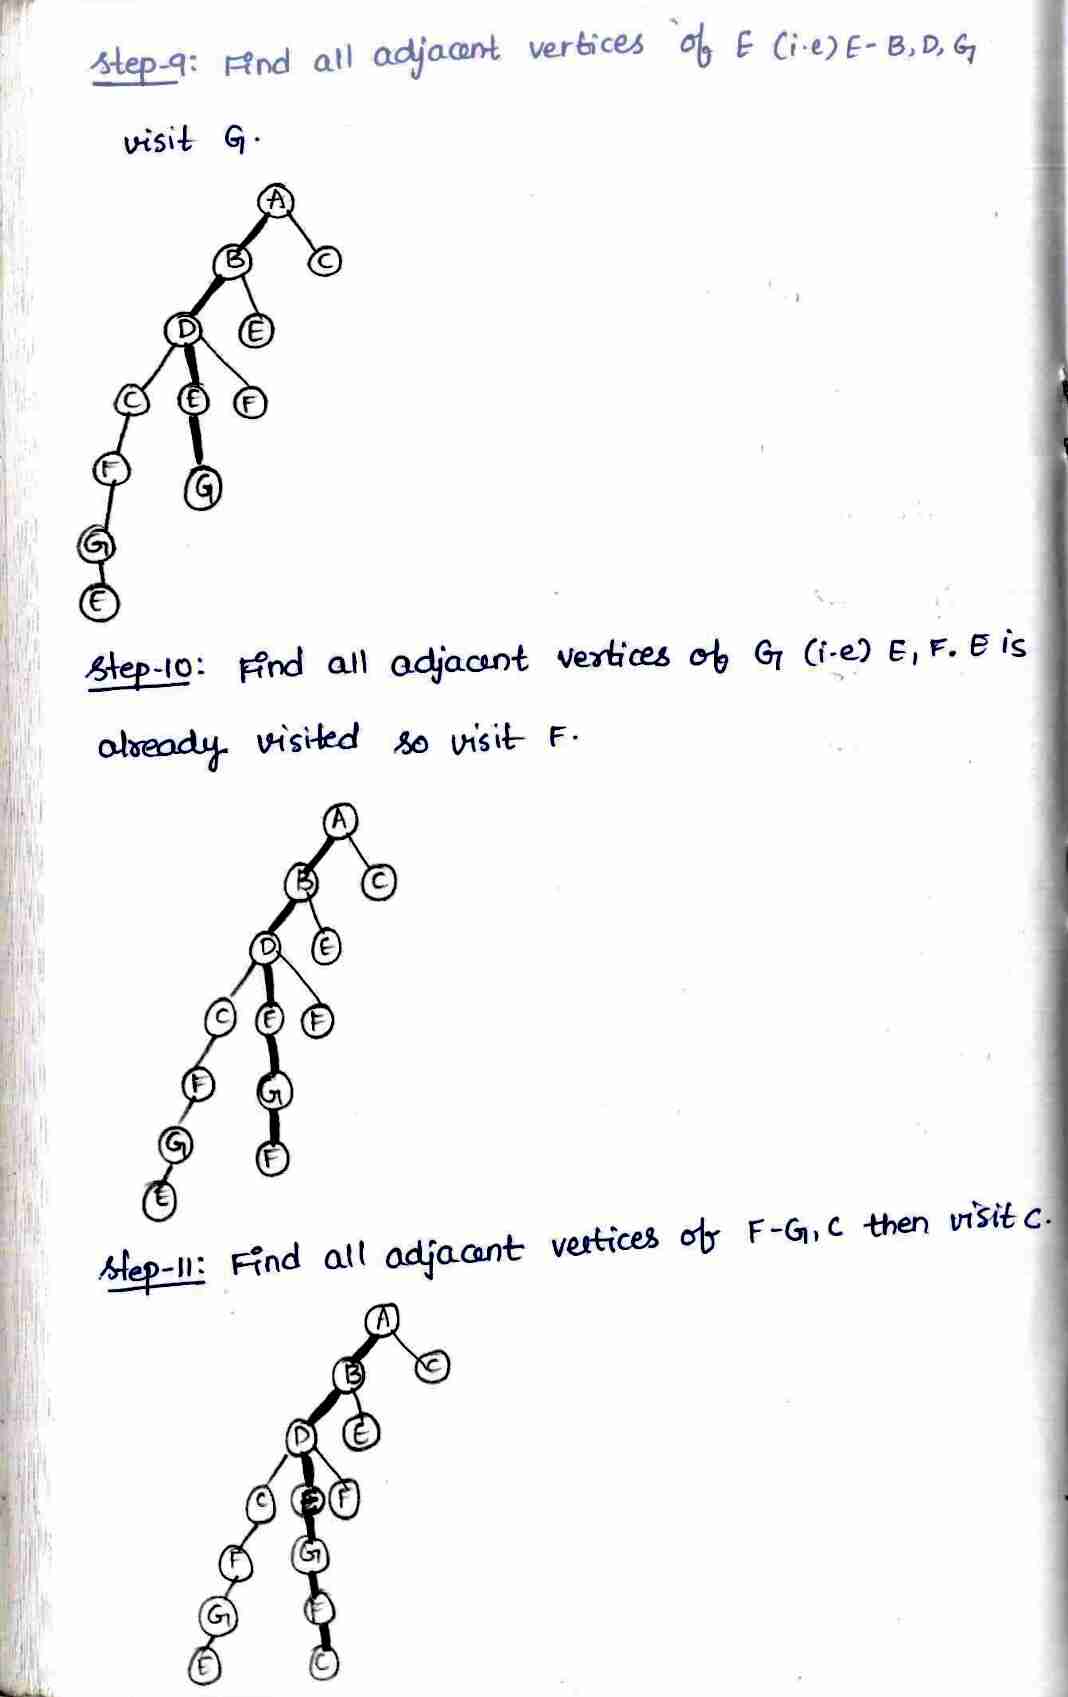 Step-9: Find all adjacent vertices of E (i-e) E- B, D, G
visit G.
A
B C
D E
C E F
F
G
G
E
Step-10: Find all adjacent vertices of G (i-e) E, F. E is
already visited so visit F.
A
B C
D E
C E F
F G
G F
E
Step-11: Find all adjacent vertices of F-G, C then visit C.
A
B C
D E
C E F
F G
G F
E C